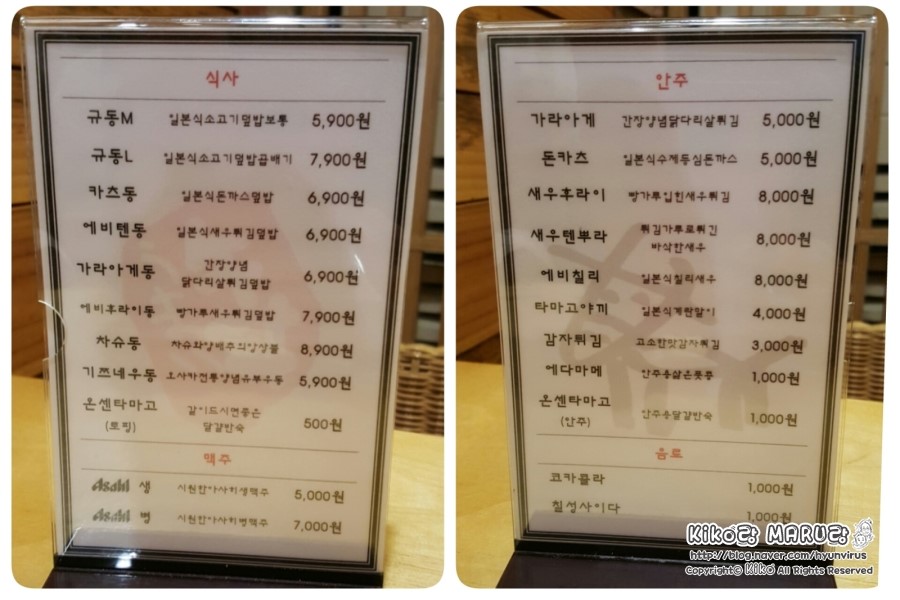 식사
규동M 일본식소고기덮밥보통 5,900원
규동L 일본식소고기덮밥곱배기 7,900원
카츠동 일본식돈까스덮밥 6,900원
에비텐동 일본식새우튀김덮밥 6,900원
가라아게동 간장양념 닭다리살튀김덮밥 6,900원
에비후라이동 빵가루새우튀김덮밥 7,900원
차슈동 차슈와양배추의앙상블 8,900원
기쯔네우동 오사카전통양념유부우동 5,900원
온센타마고 (토핑) 같이드시면좋은 달걀반숙 500원
맥주
Asahi 생 시원한아사히생맥주 5,000원
Asahi 병 시원한아사히병맥주 7,000원
안주
가라아게 간장양념닭다리살튀김 5,000원
돈카츠 일본식수제등심돈까스 5,000원
새우후라이 빵가루입힌새우튀김 8,000원
새우텐뿌라 튀김가루로튀긴 바삭한새우 8,000원
에비칠리 일본식칠리새우 8,000원
타마고야끼 일본식계란말이 4,000원
감자튀김 고소한맛감자튀김 3,000원
에다마메 안주용삶은풋콩 1,000원
온센타마고 (안주) 안주용달걀반숙 1,000원
음료
코카콜라 1,000원
칠성사이다 1,000원
Kiko랑 MARU랑
http://blog.naver.com/hyunvirus
Copyright© Kiko All Rights Reserved